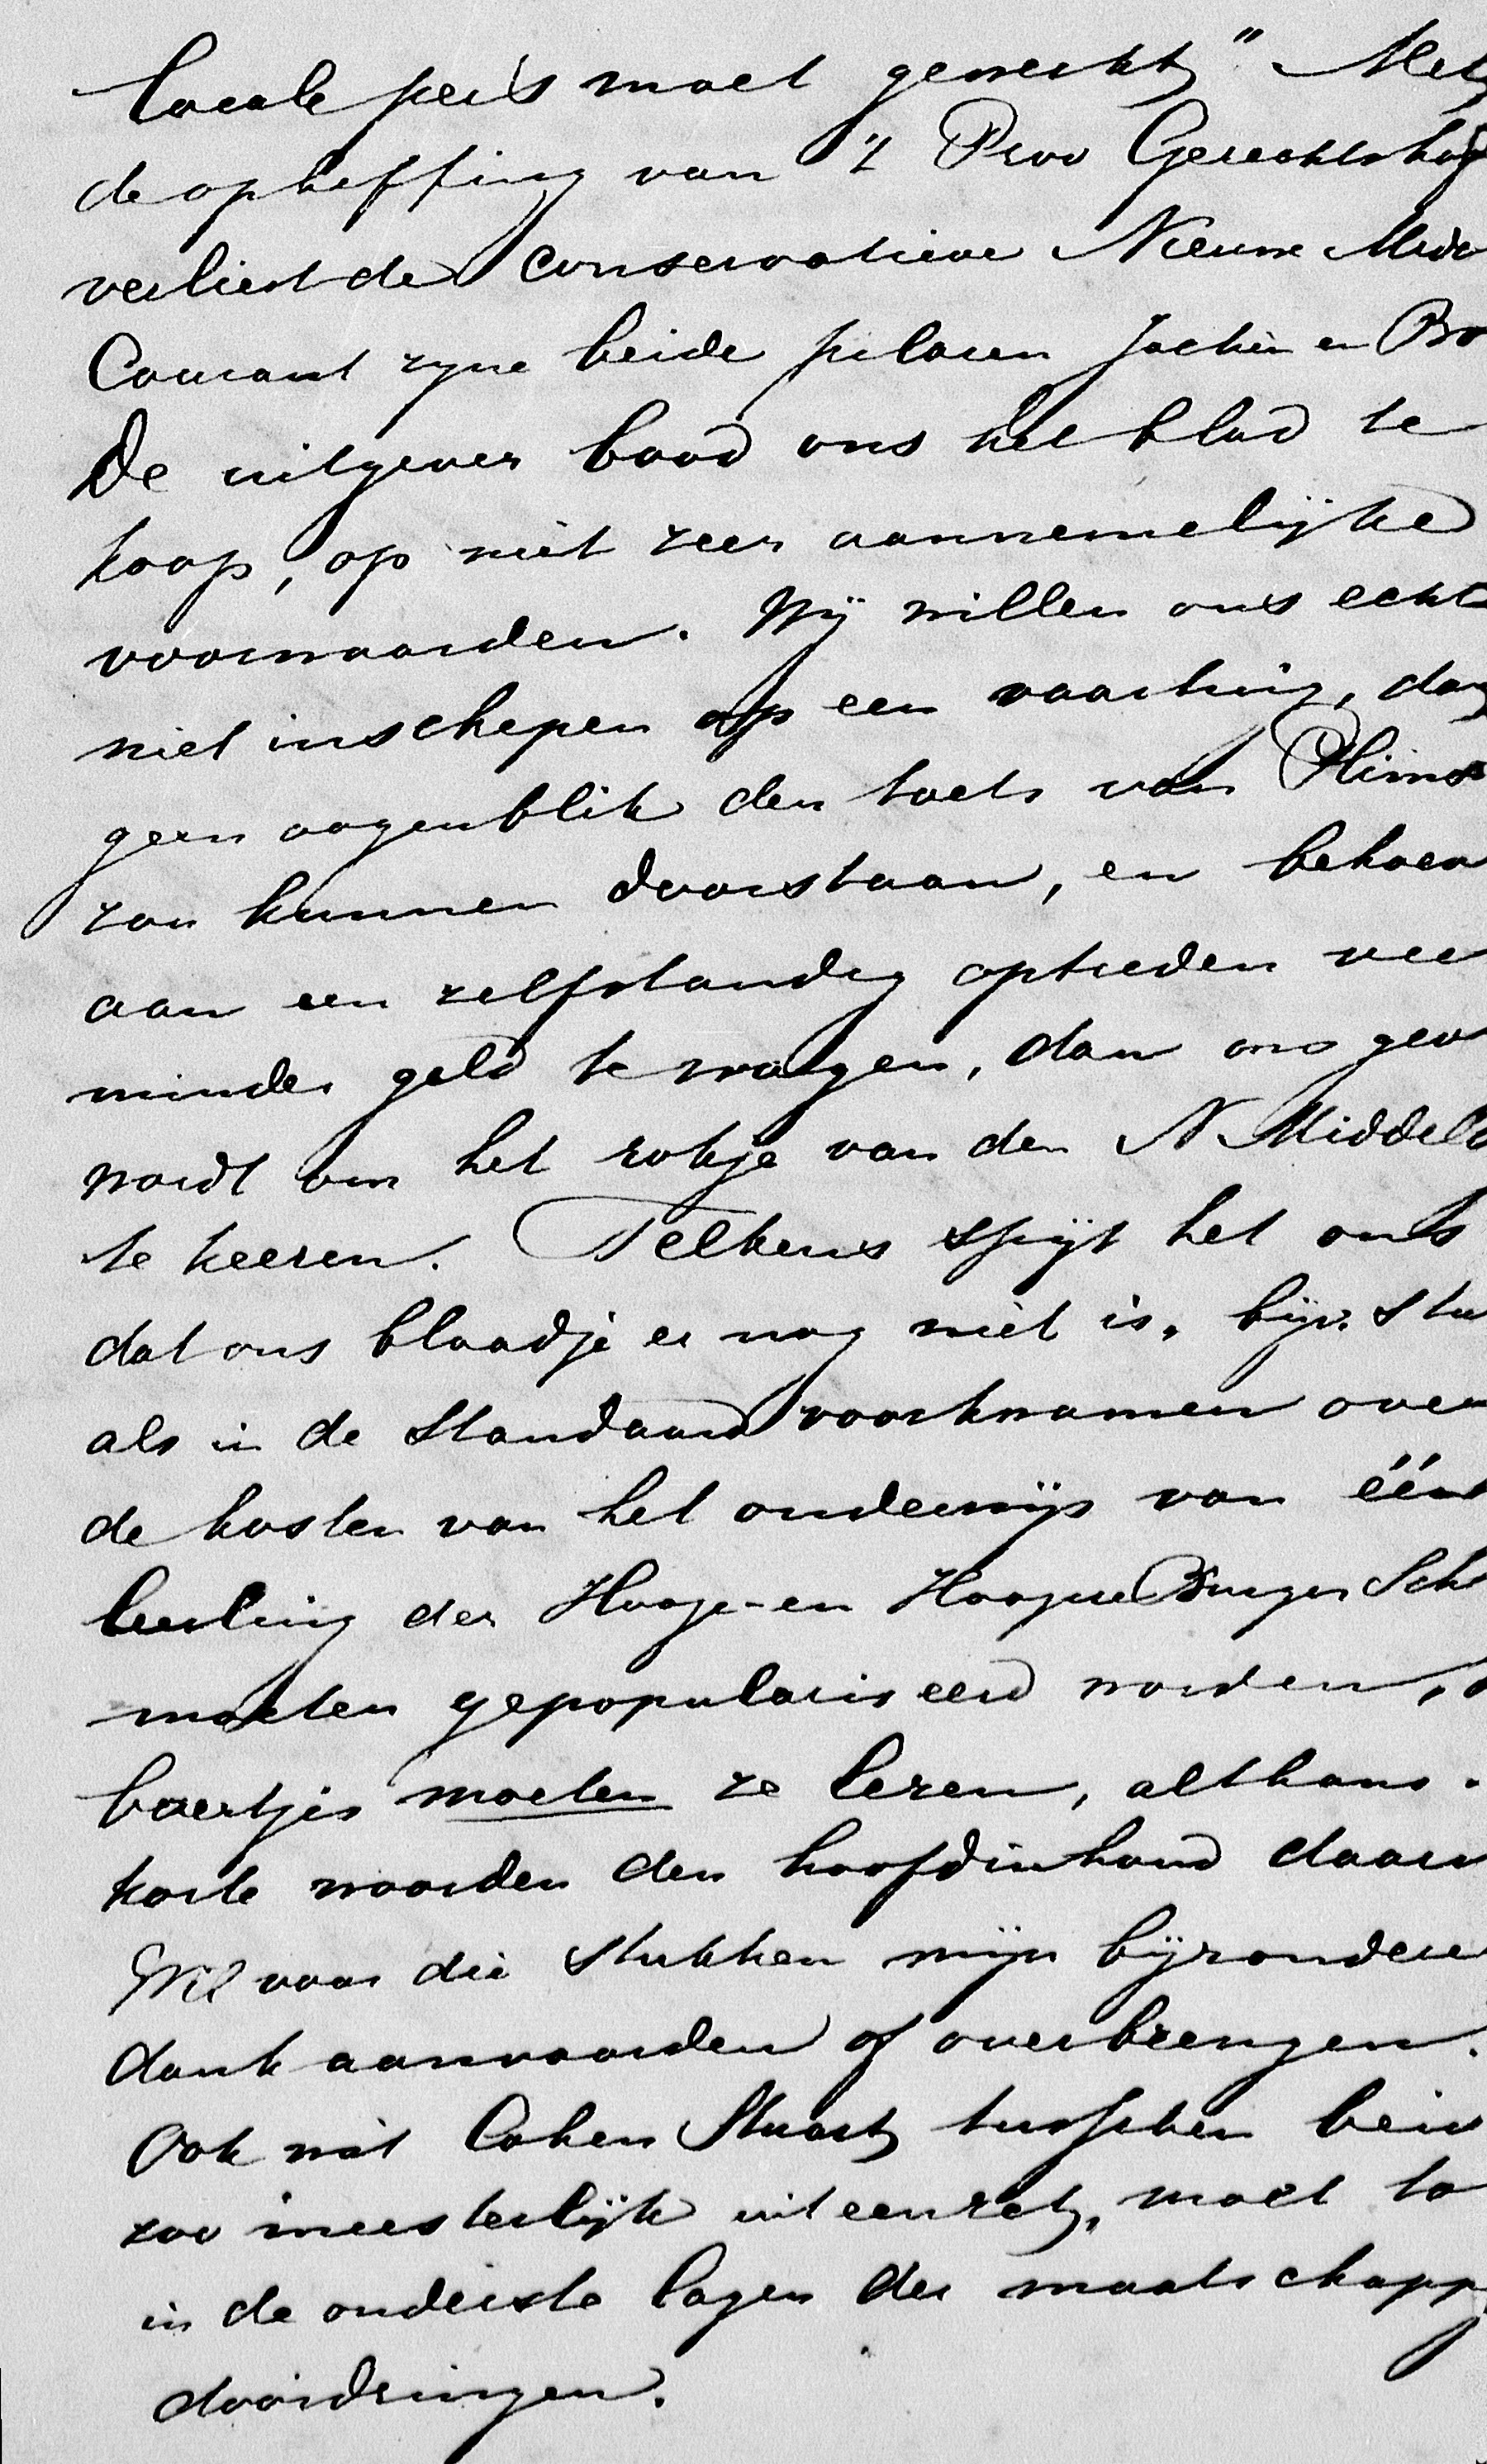 locale pers moet gewerkt" Met
de opheffing van 't Prov Gerechtshof
verliest de conservatieve Nieuwe Midd
Courant zyne beide pilaren Jachin en Bo
De uitgever bood ons het blad te
koop, op niet zeer aannemelijke
voorwaarden. Wij willen ons echt
niet inschepen op een vaartuig, dat
geen oogenblik den toets van Plims
zou kunnen doorstaan, en behoev
aan een zelfstandig optreden vee
minder geld te wagen, dan ons gev
wordt om het rokje van den N Middelb
te keeren. Telkens spijt het ons
dat ons blaadje er nog niet is. bijv. stu
als in de Standaard voorkwamen over
de kosten van het onderwijs van één
leerling der Hooge- en Hoogere Burger Sch
moeten gepopulariseerd worden,
boertjes moeten ze lezen, althans
korte woorden den hoofdinhoud daarv
Wil voor die stukken mijn bijzondere
dank aanvaarden of overbrengen.
Ook wat Cohen Stuart tusschen beid
zoo meesterlijk uiteenzet, moet to
in de onderste lagen der maatschapp
doordringen.